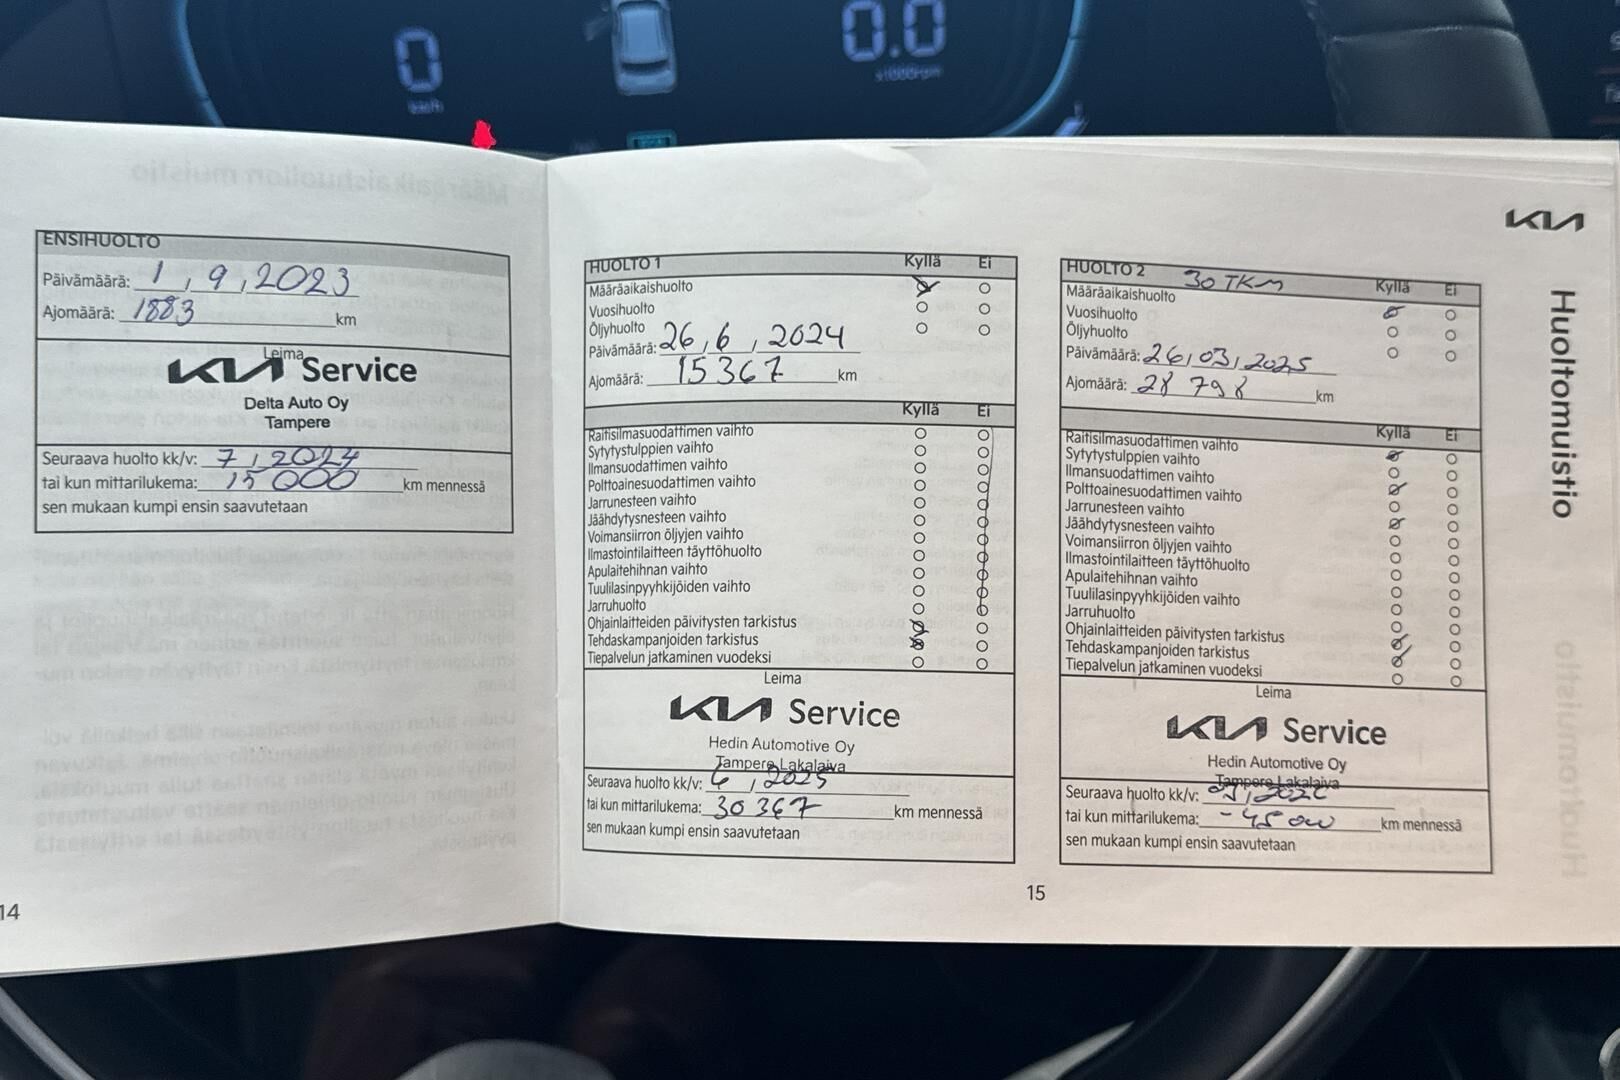 0
km/h
0.0
x1000rpm
ENSIHUOLTO
Päivämäärä: 1, 9, 2023
Ajomäärä: 1883 km
Leima
KIA Service
Delta Auto Oy
Tampere
Seuraava huolto kk/v: 7, 2024
tai kun mittarilukema: 15 000 km mennessä
sen mukaan kumpi ensin saavutetaan
14
HUOLTO 1 Kyllä Ei
Määräaikaishuolto
Vuosihuolto
Öljyhuolto
Päivämäärä: 26, 6, 2024
Ajomäärä: 15 367 km
Kyllä Ei
Raitisilmasuodattimen vaihto
Sytytystulppien vaihto
Ilmansuodattimen vaihto
Polttoainesuodattimen vaihto
Jarrunesteen vaihto
Jäähdytysnesteen vaihto
Voimansiirron öljyjen vaihto
Ilmastointilaitteen täyttöhuolto
Apulaitehihnan vaihto
Tuulilasinpyyhkijöiden vaihto
Jarruhuolto
Ohjainlaitteiden päivitysten tarkistus
Tehdaskampanjoiden tarkistus
Tiepalvelun jatkaminen vuodeksi
Leima
KIA Service
Hedin Automotive Oy
Tampere Lakalaiva
Seuraava huolto kk/v: 6, 2025
tai kun mittarilukema: 30 367 km mennessä
sen mukaan kumpi ensin saavutetaan
15
HUOLTO 2 30 TKM Kyllä Ei
Määräaikaishuolto
Vuosihuolto
Öljyhuolto
Päivämäärä: 26, 03, 2025
Ajomäärä: 28 798 km
Kyllä Ei
Raitisilmasuodattimen vaihto
Sytytystulppien vaihto
Ilmansuodattimen vaihto
Polttoainesuodattimen vaihto
Jarrunesteen vaihto
Jäähdytysnesteen vaihto
Voimansiirron öljyjen vaihto
Ilmastointilaitteen täyttöhuolto
Apulaitehihnan vaihto
Tuulilasinpyyhkijöiden vaihto
Jarruhuolto
Ohjainlaitteiden päivitysten tarkistus
Tehdaskampanjoiden tarkistus
Tiepalvelun jatkaminen vuodeksi
Leima
KIA Service
Hedin Automotive Oy
Tampere Lakalaiva
Seuraava huolto kk/v:
tai kun mittarilukema: - 45 000 km mennessä
sen mukaan kumpi ensin saavutetaan
KIA
Huoltomuistio